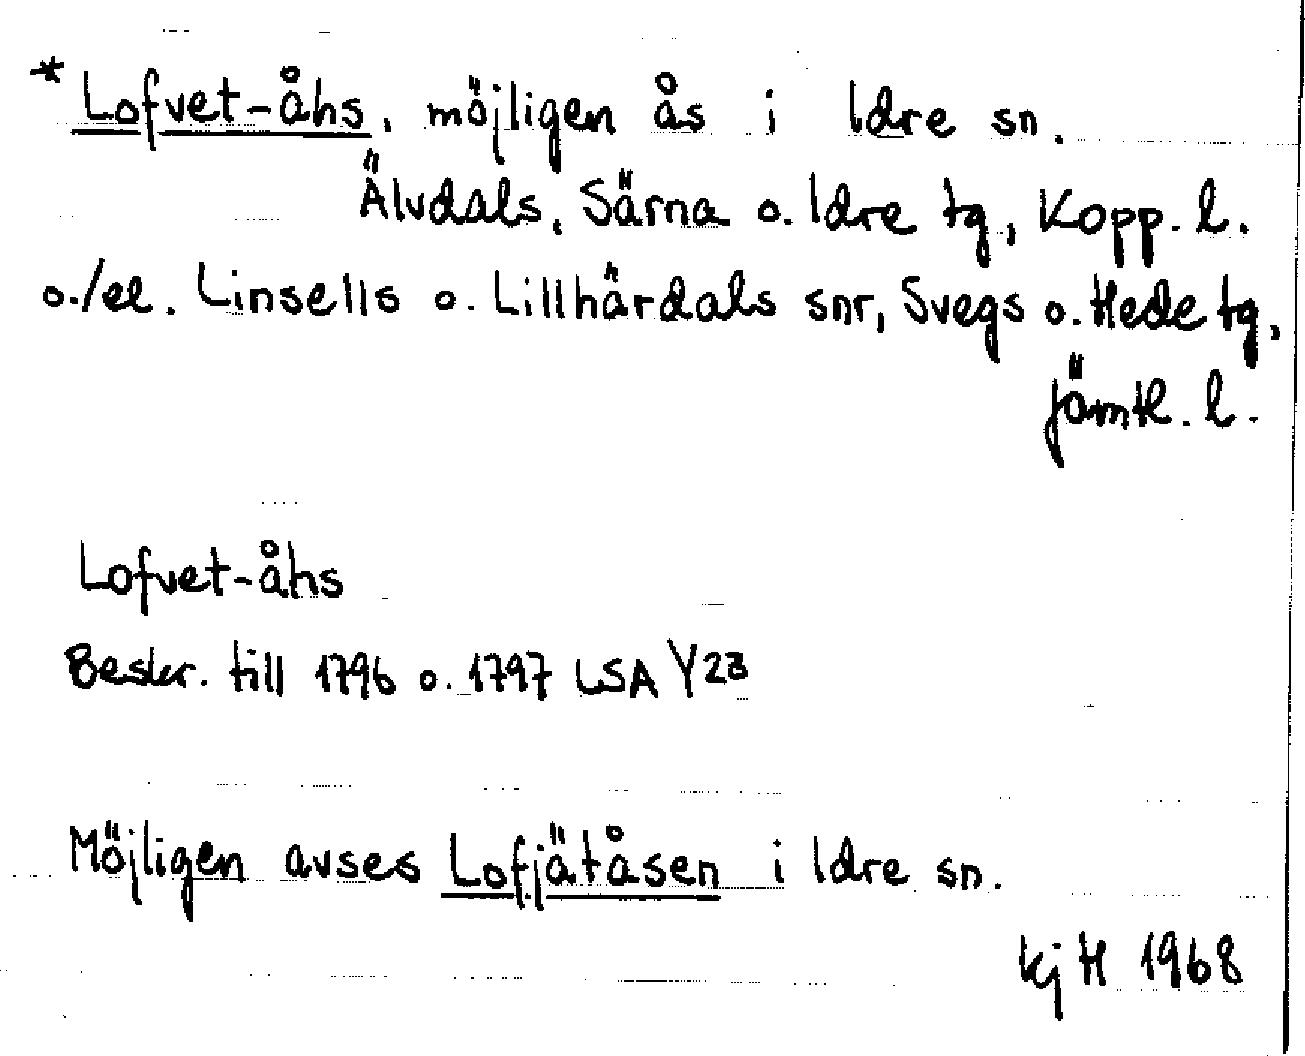 *Lofvet-åhs, möjligen ås i Idre sn.
Älvdals, Särna o. Idre tg, Kopp. l.
o./el. Linsells o. Lillhärdals snr, Svegs o. Hede tg,
Jämtl. l.
Lofvet-åhs
Beskr. till 1796 o. 1797 LSA Y23
Möjligen avses Lofjätåsen i Idre sn.
kj H 1968